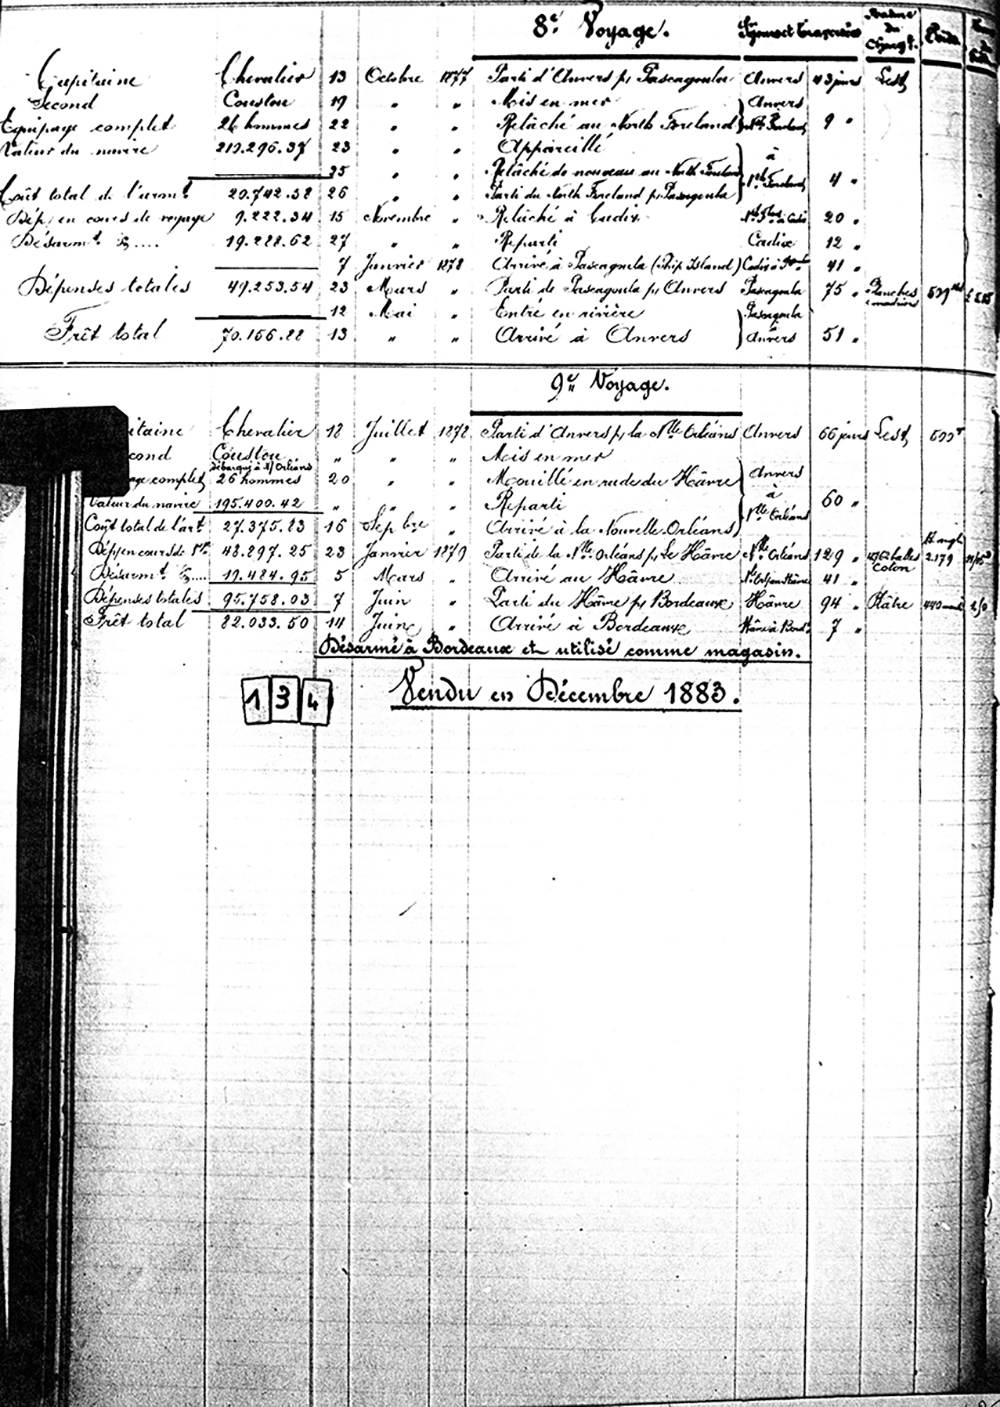 8e Voyage. Séjours et Traversées Nature du Charg.t Poids
Capitaine Chevalier 13 Octobre 1877 Parti d'Anvers pr Pascagoula Anvers 43 jours Lest
Second Coustou 19 " " Mis en mer Anvers
Equipage complet 26 hommes 22 " " Relâché au North Foreland à Nth Foreland 9 "
Valeur du navire 23 " " Appareillé
25 " " Relâché de nouveau au North Foreland à Nth Foreland 4 "
Coût total de l'armt 20.742.58 26 " " Parti du North Foreland pr Pascagoula
Dép. en cours de voyage 9.222.34 15 Novembre " Relâché à Cadix 20 "
Désarmt &.... 19.288.62 27 " " Reparti Cadix 12 "
7 Janvier 1878 Arrivé à Pascagoula (Ship Island) 41 "
Dépenses totales 49.253.54 23 Mars " Parti de Pascagoula pr Anvers Pascagoula 75 " Planches
12 Mai " Entré en rivière Pascagoula
Frêt total 70.166.22 13 " " Arrivé à Anvers à Anvers 51 "
9e Voyage.
itaine Chevalier 18 Juillet 1878 Parti d'Anvers pr la Nlle Orléans Anvers 66 jours Lest
cond Coustou " " " Mis en mer
débarqué à N/Orléans
age complet 26 hommes 20 " " Mouillé en rade du Hâvre Anvers
Valeur du navire 195.400.42 " " " Reparti à Nlle Orléans 60 "
Coût total de l'art 27.375.23 16 Sepbre " Arrivé à la Nouvelle Orléans
Dép. en cours de 48.297.25 23 Janvier 1879 Parti de la Nlle Orléans pr le Hâvre Nlle Orléans 129 " balles Coton 2.179
Désarmt &.... 19.484.95 5 Mars " Arrivé au Hâvre 41 "
Dépenses totales 95.758.03 7 Juin " Parti du Hâvre pr Bordeaux Hâvre 94 " Plâtre
Frêt total 82.033.50 14 Juin " Arrivé à Bordeaux Hâvre à Bordx 7 "
Désarmé à Bordeaux et utilisé comme magasin.
134 Vendu en Décembre 1883.